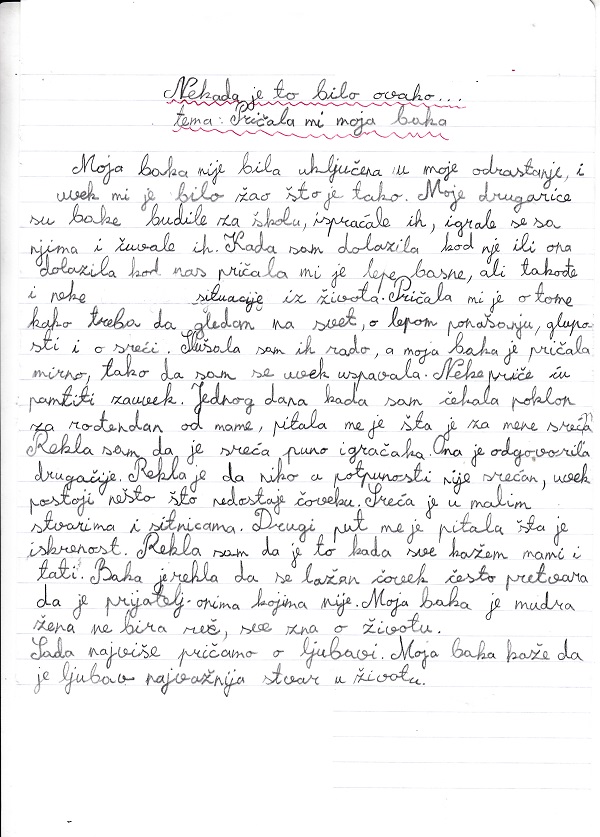 Nekada je to bilo ovako...
tema: Pričala mi moja baka
Moja baka nije bila uključena u moje odrastanje, i
uvek mi je bilo žao što je tako. Moje drugarice
su bake budile za školu, ispraćale ih, igrale se sa
njima i čuvale ih. Kada sam dolazila kod nje ili ona
dolazila kod nas pričala mi je lepe basne, ali takođe
i neke situacije iz života. Pričala mi je o tome
kako treba da gledam na svet, o lepom ponašanju, glupo
sti i o sreći. Slušala sam ih rado, a moja baka je pričala
mirno, tako da sam se uvek uspavala. Neke priče ću
pamtiti zauvek. Jednog dana kada sam čekala poklon
za rođendan od mame, pitala me je šta je za mene sreća?
Rekla sam da je sreća puno igračaka. Ona je odgovorila
drugačije. Rekla je da niko u potpunosti nije srećan, uvek
postoji nešto što nedostaje čoveku. Sreća je u malim
stvarima i sitnicama. Drugi put me je pitala šta je
iskrenost. Rekla sam da je to kada sve kažem mami i
tati. Baka je rekla da se lažan čovek često pretvara
da je prijatelj onima kojima nije. Moja baka je mudra
žena ne bira reč, sve zna o životu.
Sada najviše pričamo o ljubavi. Moja baka kaže da
je ljubav najvažnija stvar u životu.